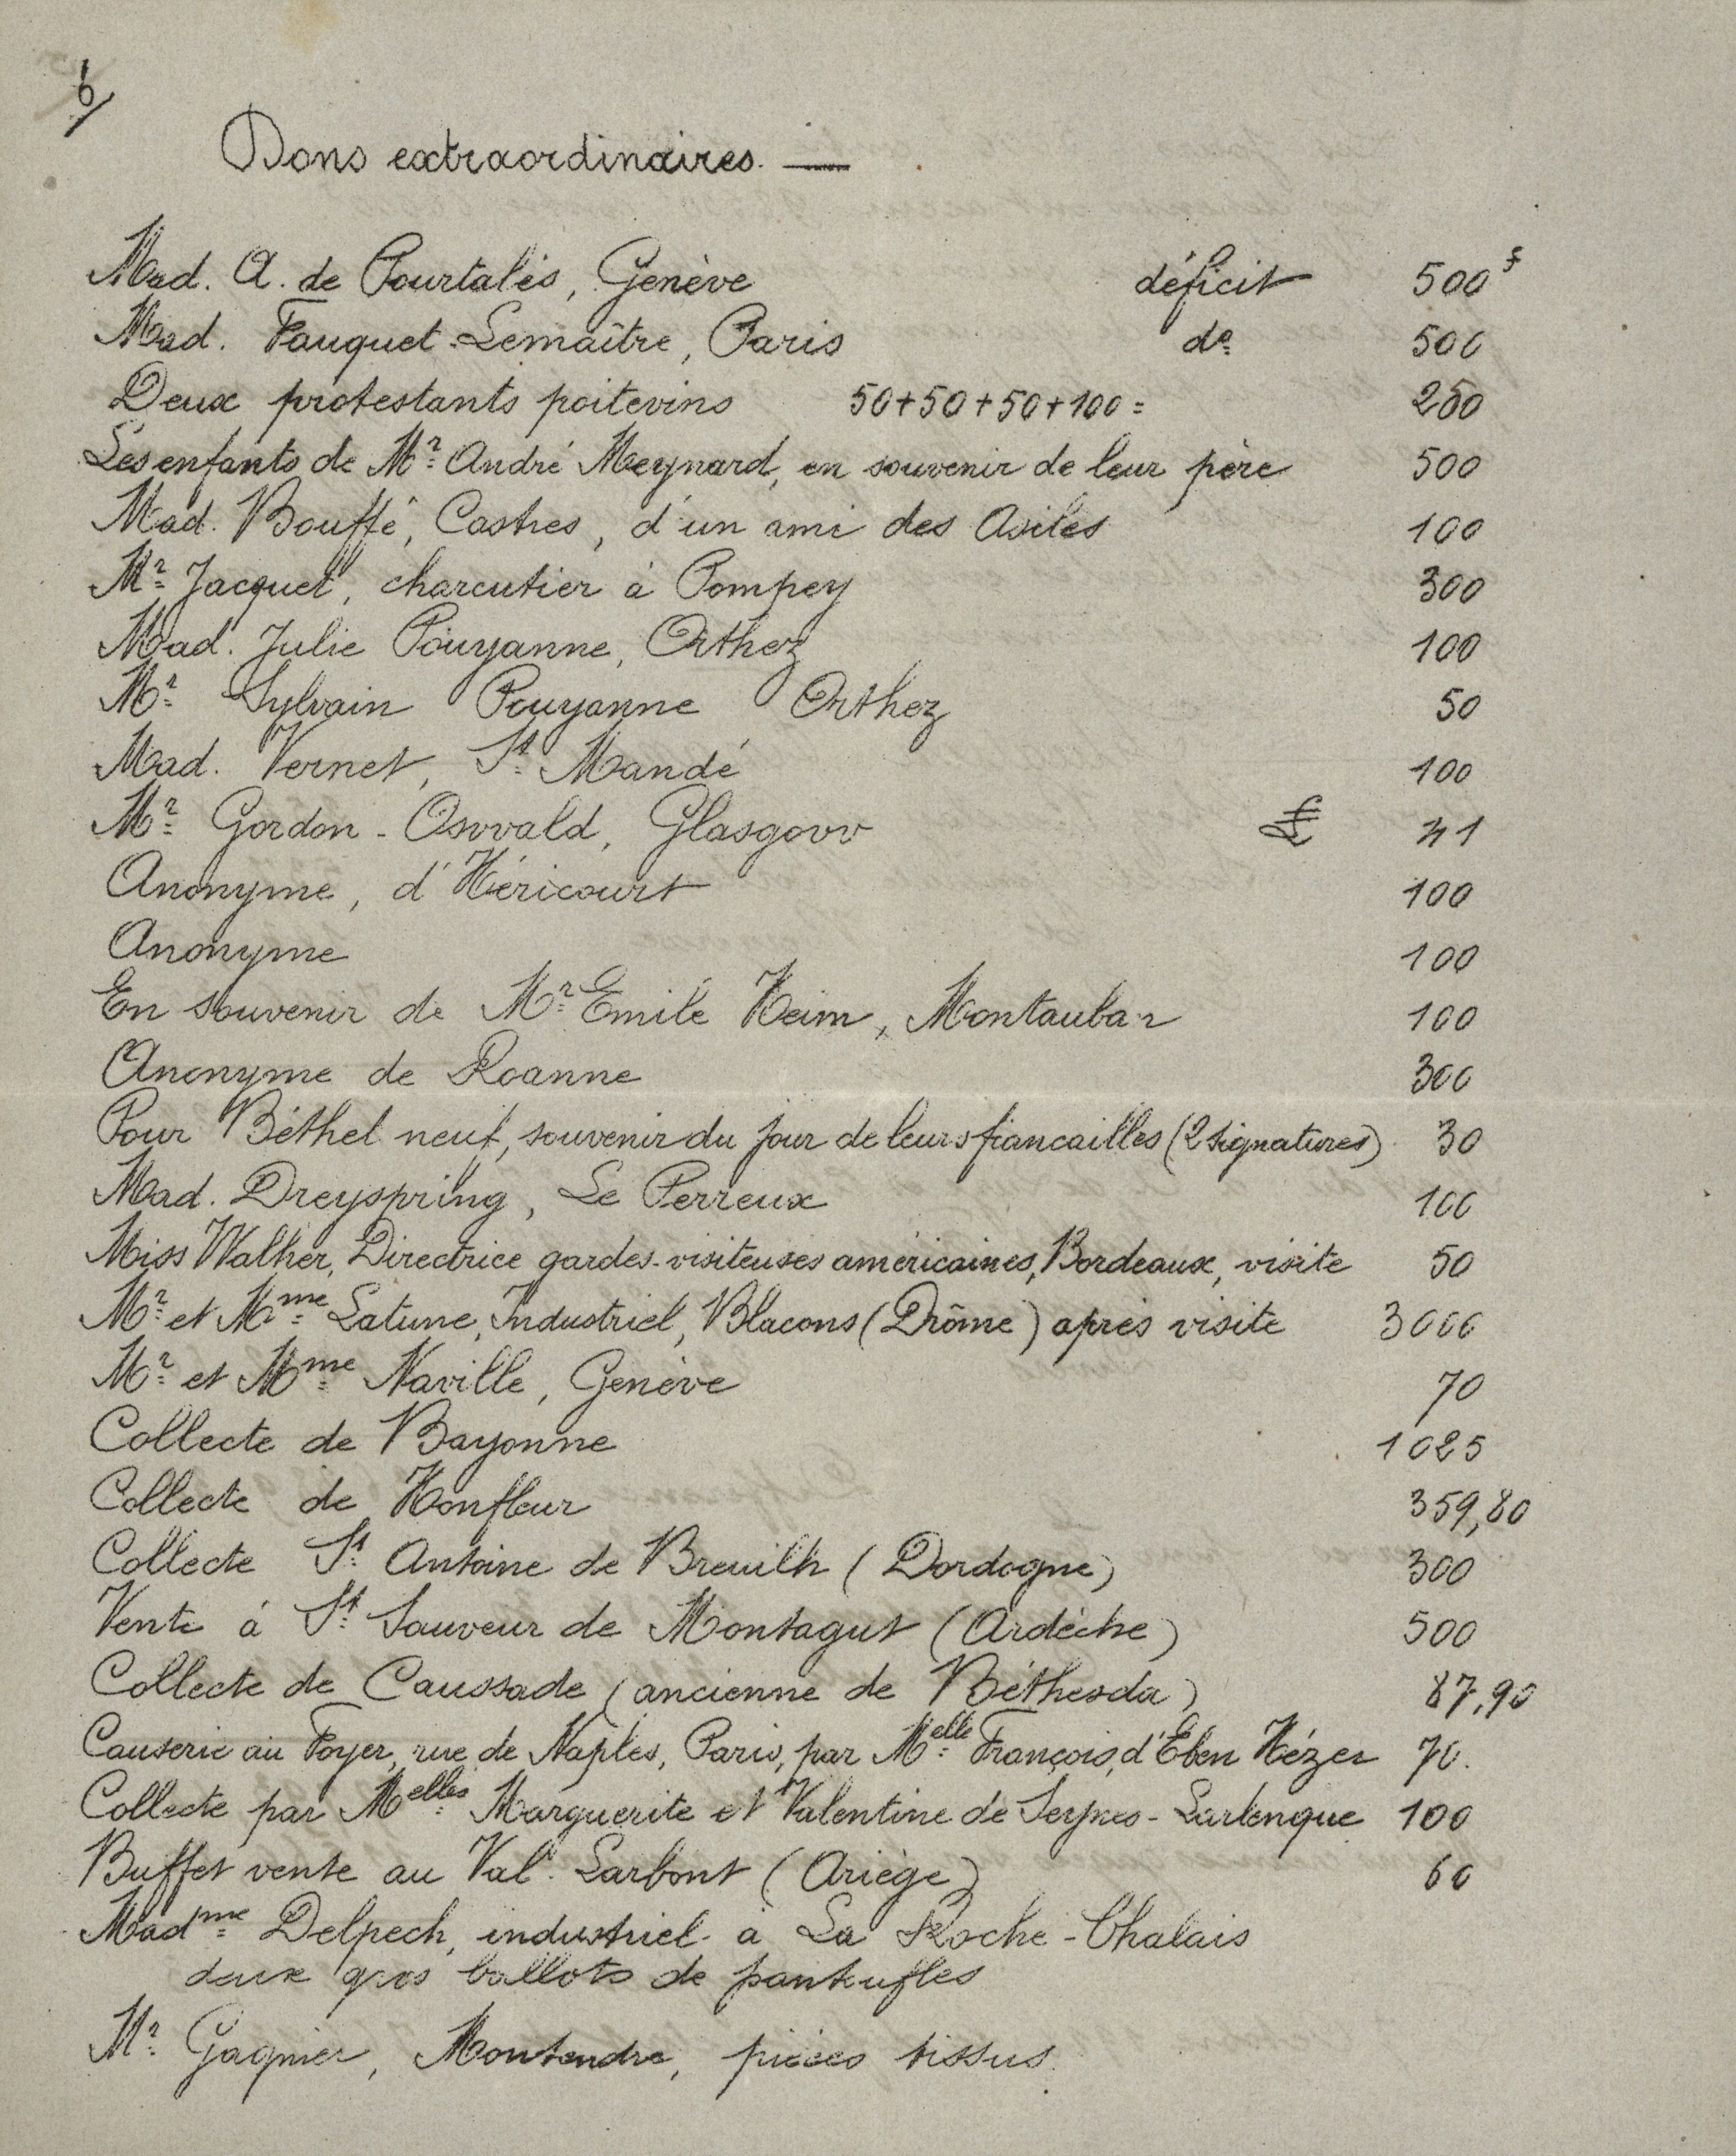 6/
Dons extraordinaires. —
Mad. A. de Pourtalès, Genève déficit 500 f
Mad. Fauquet-Lemaître, Paris do 500
Deux protestants poitevins 50+50+50+100= 250
Les enfants de Mr André Meynard, en souvenir de leur père 500
Mad. Bouffé, Castres, d'un ami des Asiles 100
Mr Jacquet, charcutier à Pompey 300
Mad. Julie Pouyanne, Orthez 100
Mr Sylvain Pouyanne Orthez 50
Mad. Vernet, St Mandé 100
Mr Gordon-Oswald, Glasgow £ 41
Anonyme, d'Héricourt 100
Anonyme 100
En souvenir de Mr Emile Heim, Montauban 100
Anonyme de Roanne 300
Pour Béthel neuf, souvenir du jour de leurs fiancailles (2 signatures) 30
Mad. Dreyspring, Le Perreux 100
Miss Walker, Directrice gardes-visiteuses américaines, Bordeaux, visite 50
Mr et Mme Latune, Industriel, Blacons (Drôme) après visite 3000
Mr et Mme Naville, Genève 70
Collecte de Bayonne 1025
Collecte de Honfleur 359,80
Collecte St Antoine de Breuilh (Dordogne) 300
Vente à St Sauveur de Montagut (Ardèche) 500
Collecte de Caussade (ancienne de Béthesda) 87,90
Causerie au Foyer, rue de Naples, Paris, par Melle François, d'Eben Hézer 70.
Collecte par Melles Marguerite et Valentine de Seynes-Larlenque 100
Buffet vente au Val. Larbont (Ariège) 60
Madme Delpech, industriel à La Roche-Chalais
deux gros ballots de pantoufles
Mr Gagnier, Montendre, pièces tissus.